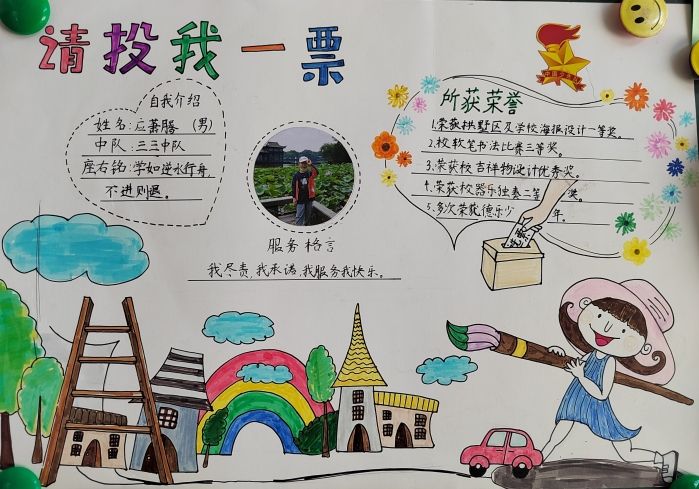 请投我一票
自我介绍
姓名:应萧腾 (男)
中队:三三中队
座右铭:学如逆水行舟,
不进则退。
服务格言
我尽责,我承诺,我服务我快乐。
中国少先队
所获荣誉
1.荣获拱墅区及学校海报设计一等奖。
2.校软笔书法比赛三等奖。
3.荣获校吉祥物设计优秀奖。
4.荣获校器乐独奏二等 奖。
5.多次荣获德乐少 年。